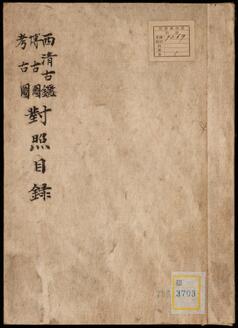 西清古鑑
博古圖
考古圖
對照目録
3703